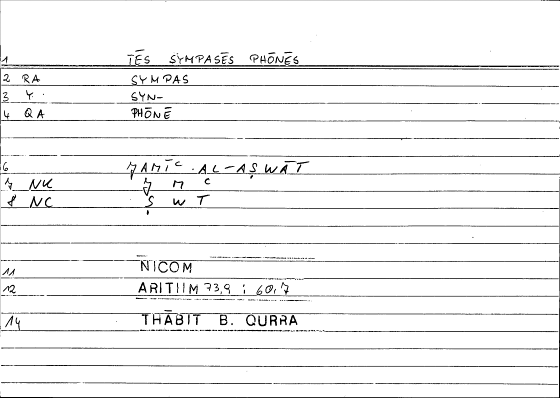 1 TĒS SYMPASĒS PHŌNĒS
2 RA SYMPAS
3 Y. SYN-
4 QA PHŌNĒ
6 ǦAMĪC.AL-AṢWĀT
7 NK Ǧ M C
8 NC Ṣ W T
11 NICOM
12 ARITIIM 73,9 ; 60,7
14 THĀBIT B. QURRA